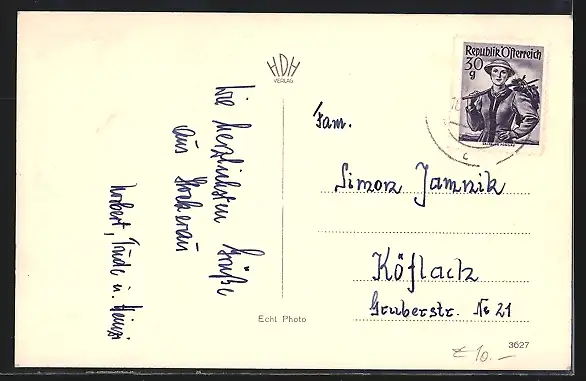 HDH
VERLAG
Die herzlichsten Grüße
aus Stockerau
Norbert, Trude u. Heinzi
Republik Österreich
30
g
Fam.
Simon Jamnik
Köflach
Gruberstr. No 21
Echt Photo
3627
€ 10.-